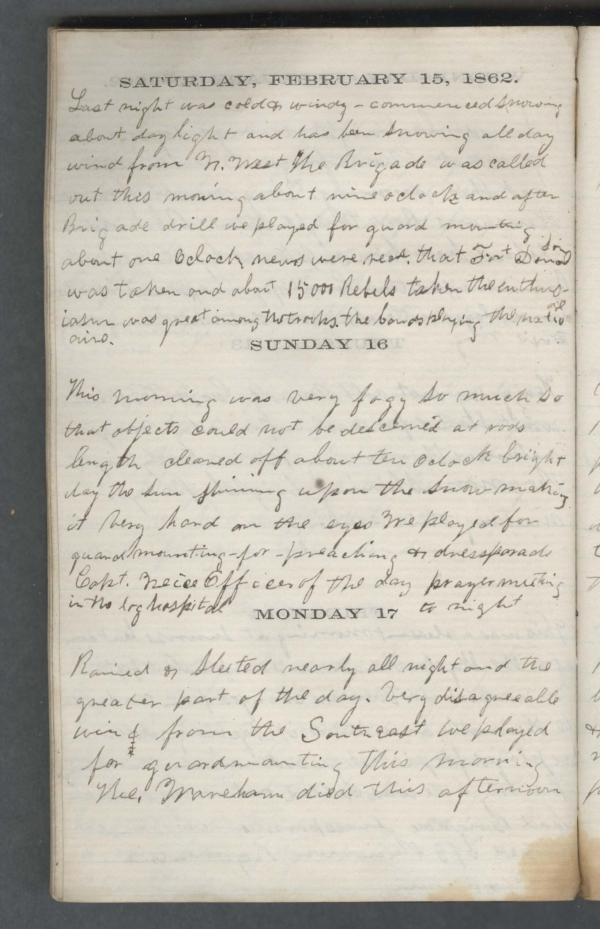 SATURDAY, FEBRUARY 15, 1862.
Last night was cold & windy - commenced snowing
about day light and has been snowing all day
wind from N. West The Brigade was called
out this morning about nine oclock and after
Brigade drill we played for guard mounting
about one Oclock news were recd. that Fort Donelson
was taken and about 15000 Rebels taken the enthus-
iasm was great among the troops. the bands playing the national
airs.
SUNDAY 16
This morning was very fogy so much so
that objects could not be descerned at rods
length cleared off about ten Oclock bright
day the sun shining upon the snow making
it very hard on the eyes We played for
guard mounting - for - preaching & dressparade
Capt. Officer of the day prayer meeting
in the log hospital to night
MONDAY 17
Rained & Sleted nearly all night and the
greater part of the day. Very disagreeable
wind from the Southeast we played
for guardmounting this morning
Wareham died this afternoon